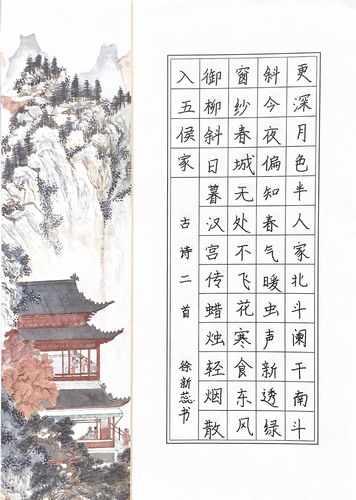 更深月色半人家北斗阑干南斗
斜今夜偏知春气暖虫声新透绿
窗纱春城无处不飞花寒食东风
御柳斜日暮汉宫传蜡烛轻烟散
入五侯家 古诗二首 徐新蕊书